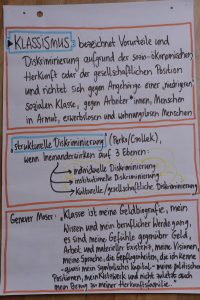 KLASSISMUS: bezeichnet Vorurteile und
Diskriminierung aufgrund der sozio-ökonomischen
Herkunft oder der gesellschaftlichen Position
und richtet sich gegen Angehörige einer „niedrigeren"
sozialen Klasse, gegen Arbeiter*innen, Menschen
in Armut, erwerbslosen und wohnungslosen Menschen
strukturelle Diskriminierung (Perko/Czollek),
wenn Ineinanderwirken auf 3 Ebenen:
individuelle Diskriminierung
institutionelle Diskriminierung
kulturelle/gesellschaftliche Diskriminierung
Geneva Moser: „Klasse ist meine Geldbiografie, mein
Wissen und mein beruflicher Werdegang,
es sind meine Gefühle gegenüber Geld,
Arbeit und materieller Existenz, meine Visionen,
meine Sprache, die Gepflogenheiten, die ich kenne
- quasi mein symbolisches Kapital - meine politischen
Positionen, mein Netzwerk und nicht zuletzt auch
mein Bezug zu meiner Herkunftsfamilie."